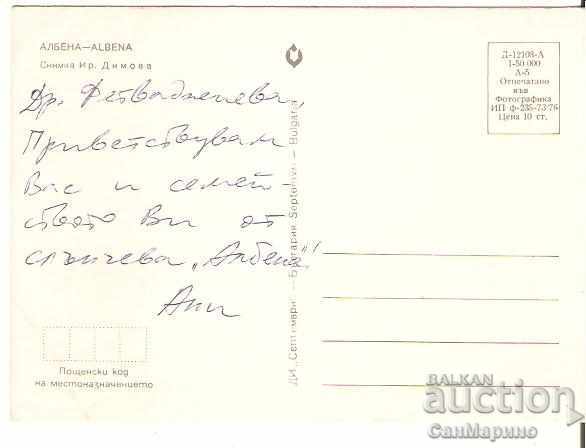 АЛБЕНА—ALBENA
Снимка Ир. Димова
Др. Фетваджиева,
Приветствувам
Вас и семей-
ството Ви от
слънчева „Албена"!
Ани
Пощенски код
на местоназначението
ДИ „Септември" — България, Septemvri — Bulgaria
Д-12108-А
1-50 000
А-5
Отпечатано
във
Фотографика
ИП ф-235-73/76
Цена 10 ст.
BALKAN
auction
СанМарино